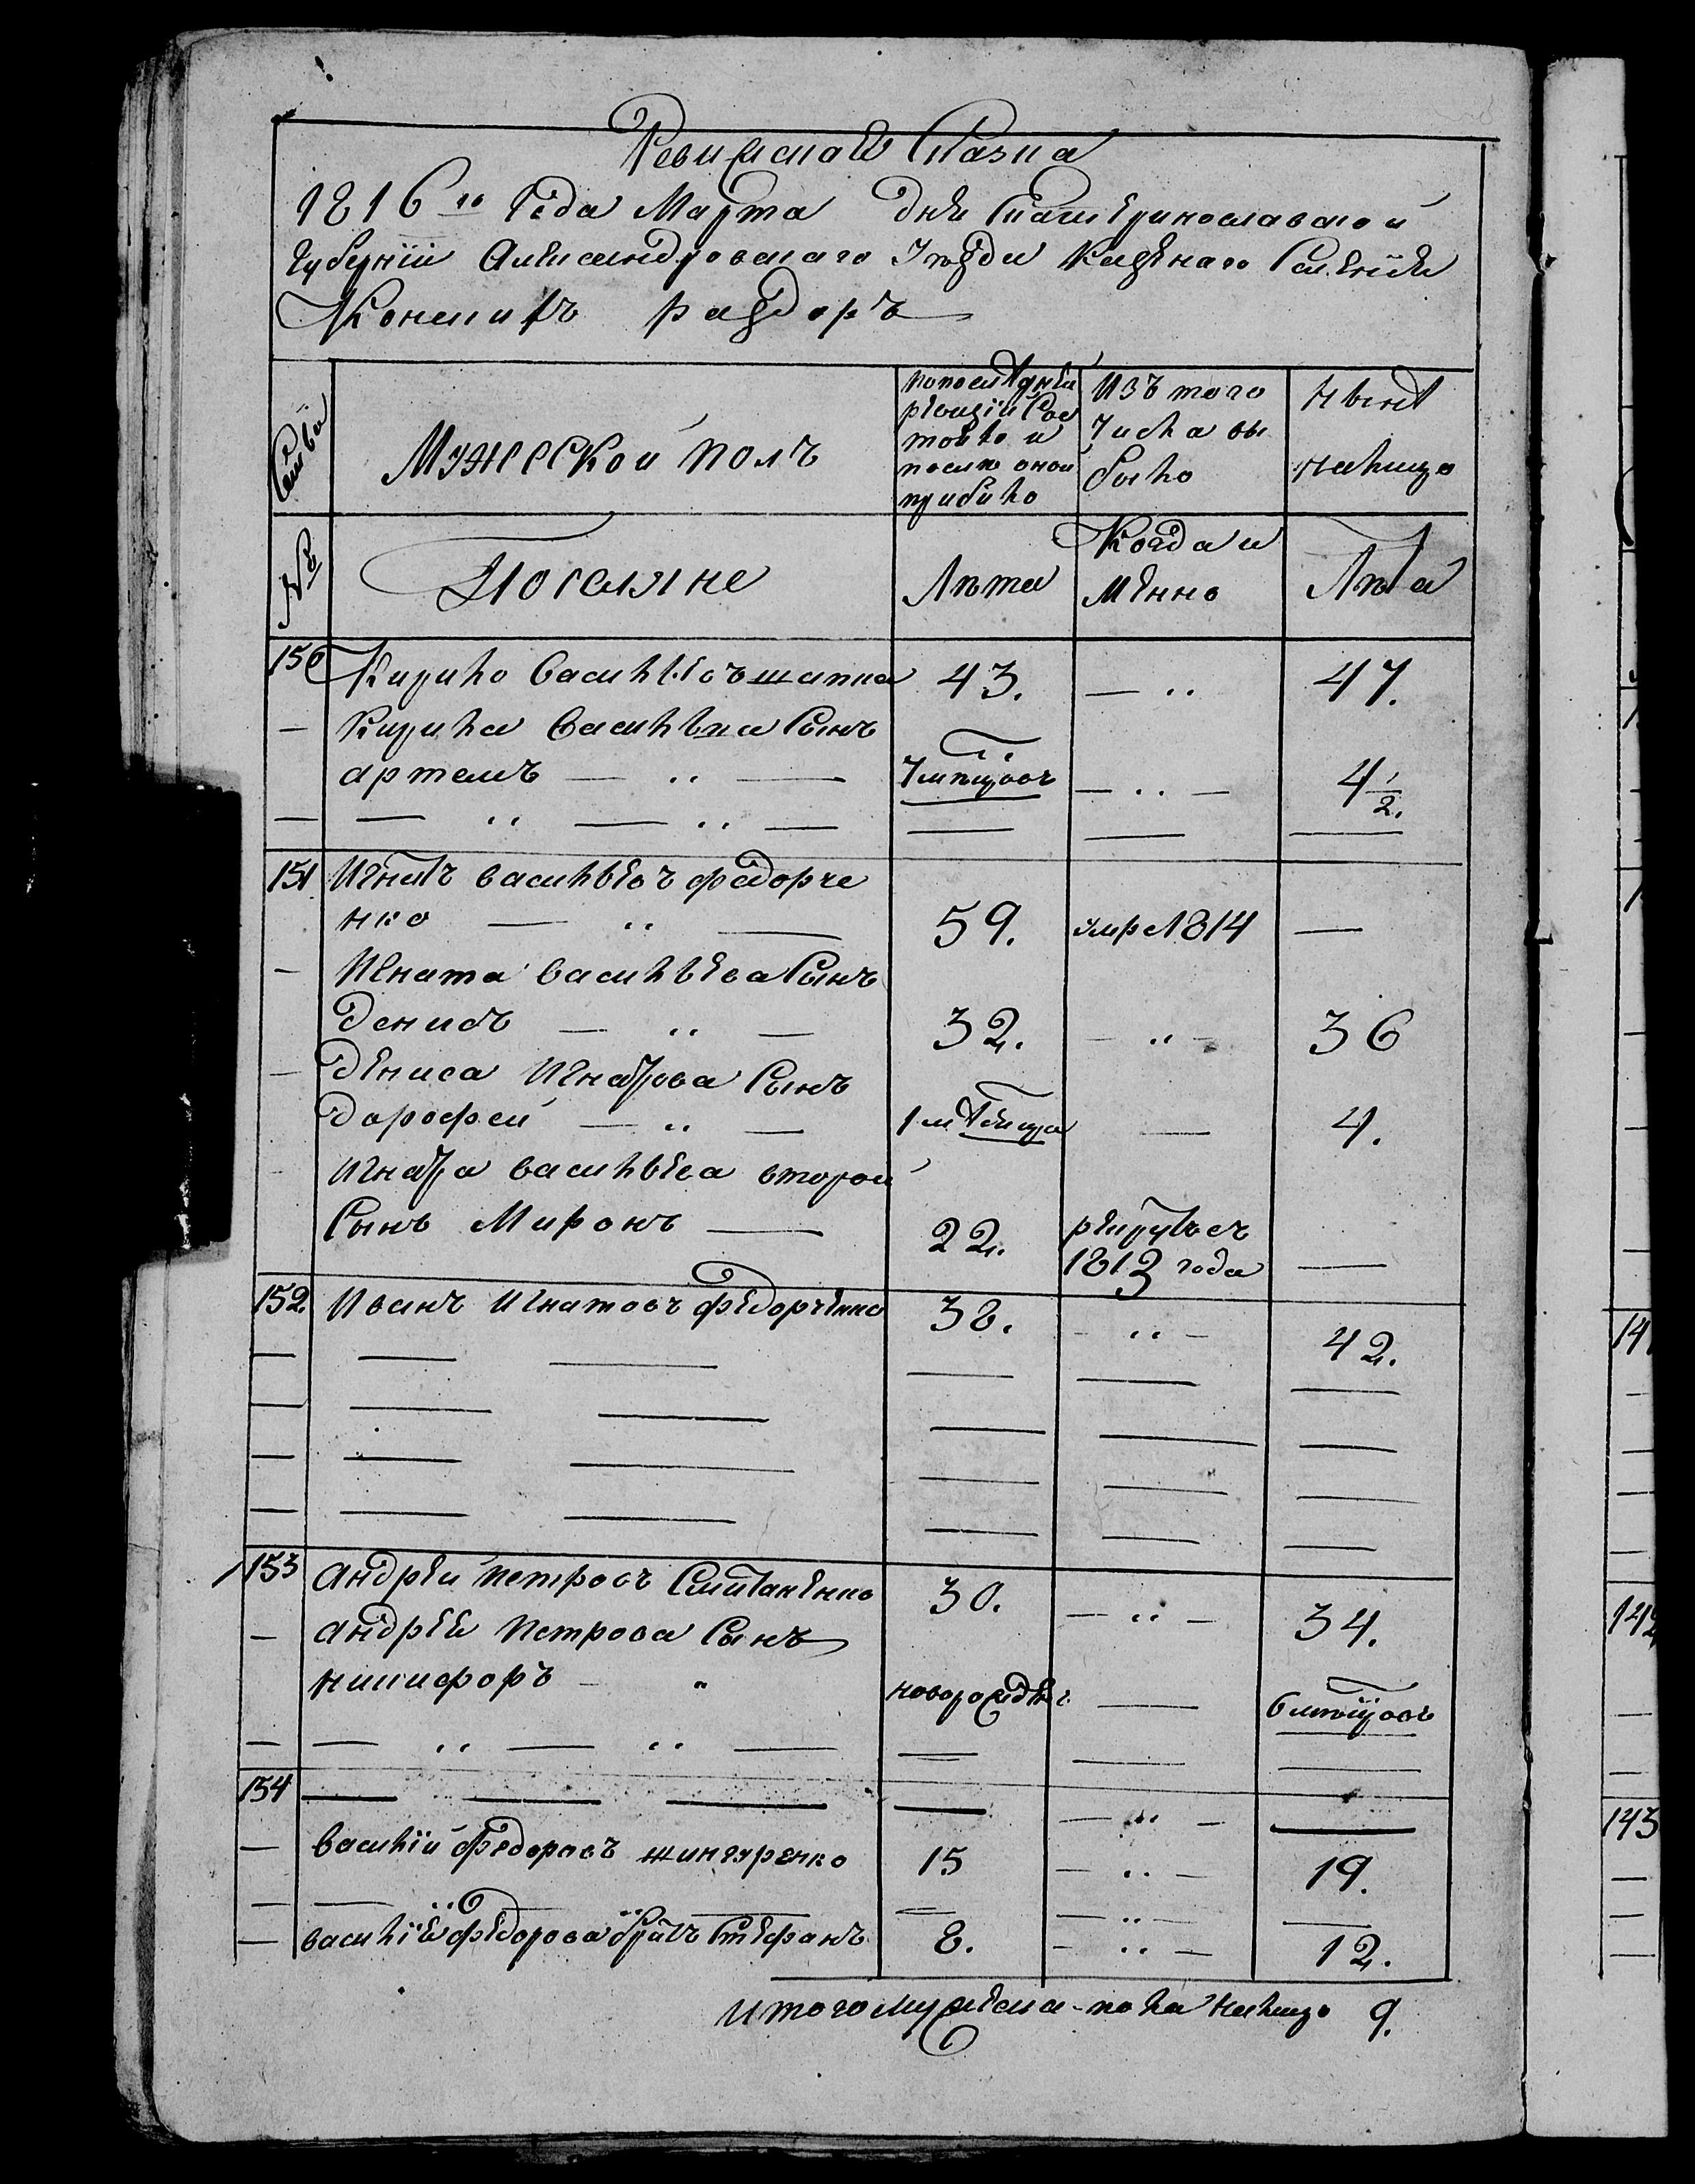 Ревижская Сказка
1816го Года Марта дня Екатеринославской
Губернїи Александровскаго Уезда Казенаго Селенїя
Конскихъ раздоръ
Семьи
Мужеской полъ
по последней
ревизїи Сос
тояло и
после оной
прибило
Изъ того
Числа вы
было
Ныне
налицо
№
Поселяне
Лѣта
Когда и
менно
Лѣта
150 Кирило Васильевъ шапка 43. 47.
Кирила Васильева Сынъ
артемъ 7 мѣсяцовъ 4 1/2.
151 Игнатъ васильевъ федорче
нко 59. умре 1814
Игната васильева Сынъ
денисъ 32. 36
дениса Игнатова Сынъ
дорофей 1 месяца 4.
Игната васильева второй
Сынъ Миронъ 22. рекрутъ съ
1813 года
152. Иванъ Игнатовъ федорченко 38. 42.
153 андрей петровъ Степаненко 30. 34.
андрея петрова Сынъ
никифоръ новорожденъ 6 мѣсяцовъ
154
василїй федоровъ шингаренко 15 19.
василїя федорова братъ Стефанъ 8. 12.
итого мужеска пола налицо 9.